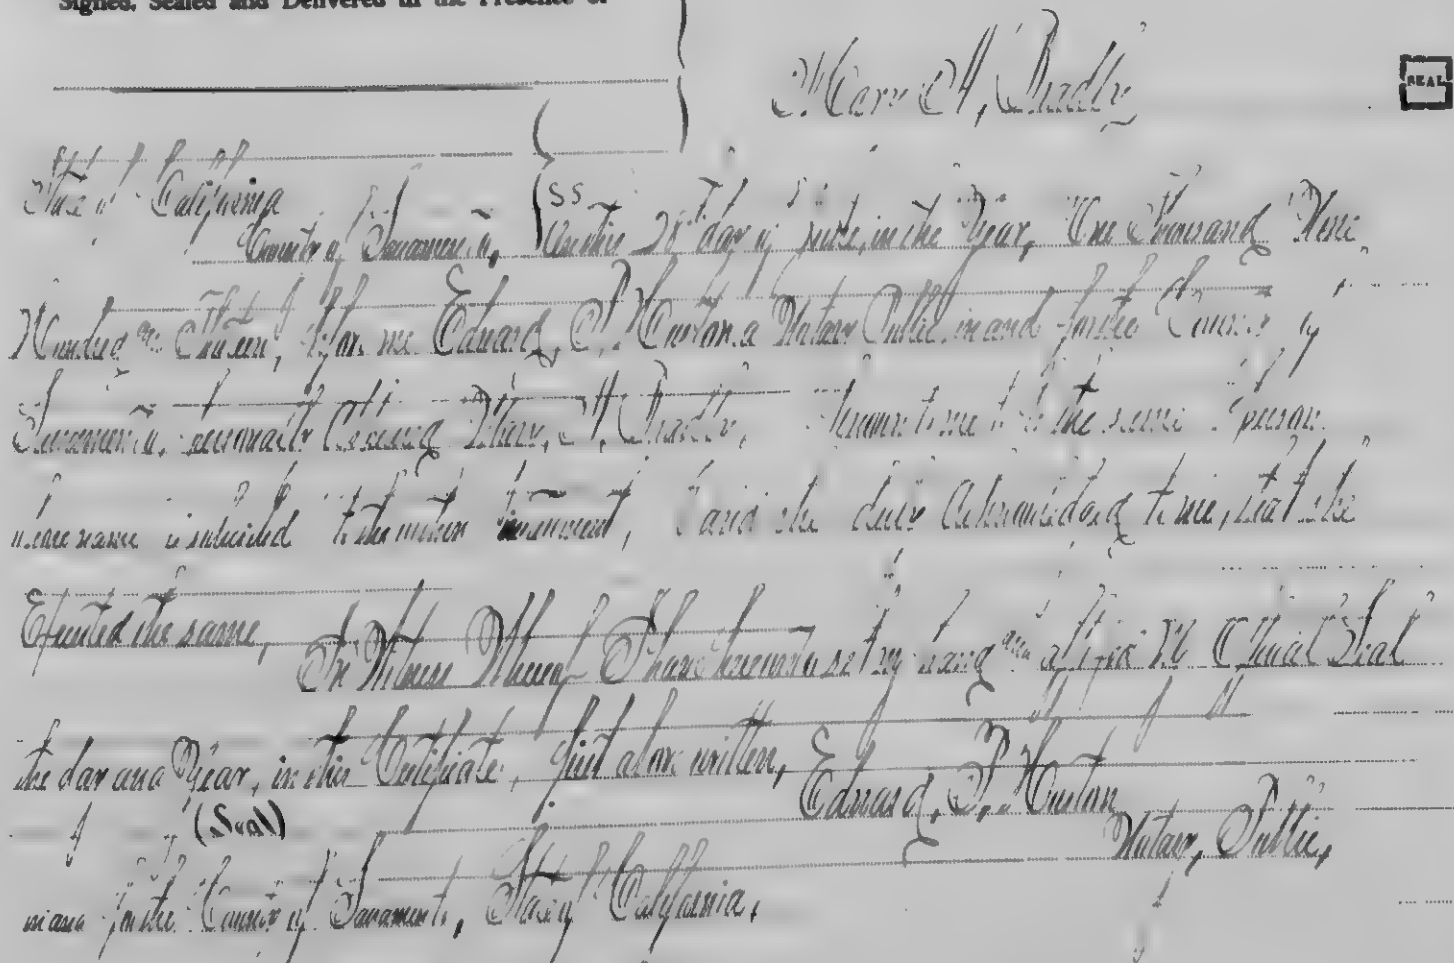 Signed, Sealed and Delivered in the Presence of
Mary H, Bradly
SEAL
State of California
SS
County of Sacramento, On this 28th day of June, in the Year, One Thousand Nine
Hundred and, before me Edward, P. Huston a Notary Public, in and for the County of
Sacramento, personally Mary, H, Bradly, known to me to be the same person
whose name is subscribed to the within instrument, and she duly Acknowledged to me, that she
Executed the same, In Witness Whereof I have hereunto set my hand and affix my Official Seal
the day and Year, in this Certificate, first above written, Edward, P. Huston
(Seal)
Notary, Public,
in and for the County of Sacramento, State of California,